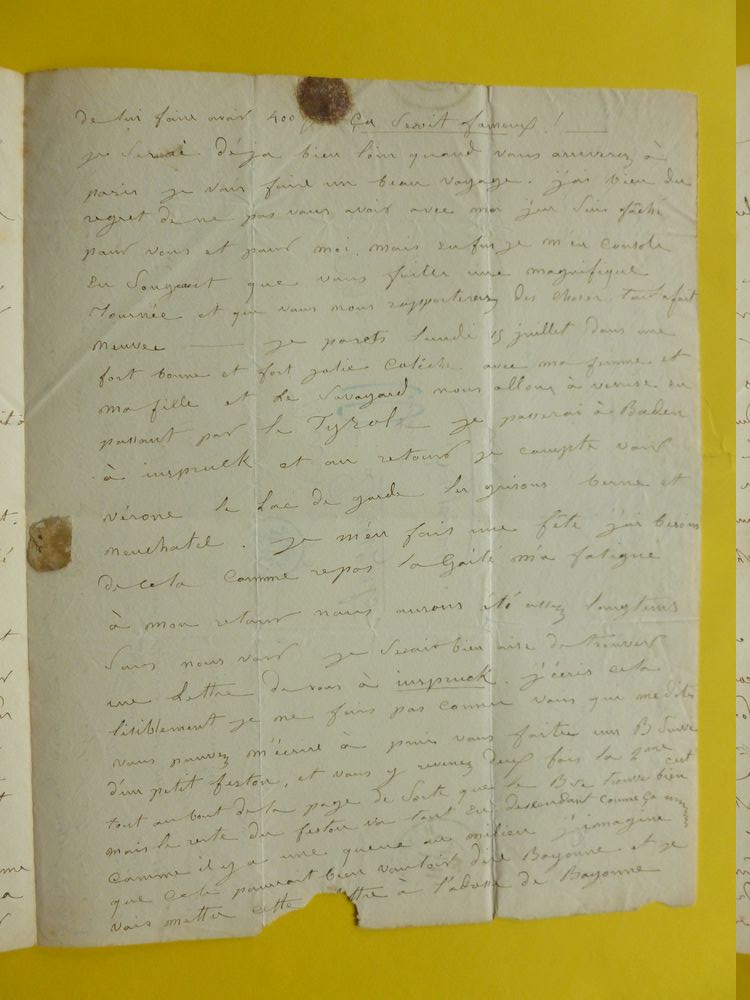 de lui faire avoir 400 f Ça Seroit fameux !
je Serai déja bien loin quand vous arriverez à
paris je vais faire un beau voyage. j'ai bien du
regret de ne pas vous avoir avec moi j'en Suis fâché
pour vous et pour moi, mais enfin je m'en console
en Songeant que vous faites une magnifique
Tournée et que vous nous rapporterez des choses tout afait
neuves je parts lundi 15 juillet dans une
fort bonne et fort jolie Caléche avec ma femme et
ma fille et Le Savoyard nous allons à venise en
passant par le Tyrol – je passerai à Baden
à inspruck et au retour je compte voir
vérone le Lac de garde les grisons berne et
neuchatel. je m'en fais une fête j'ai besoin
de cela Comme repos la Gaité m'a fatigué
à mon retour nous aurons été assez longtems
Sans nous voir je Serait bien aise de trouver
une Lettre de vous à inspruck. j'écris cela
lisiblement je ne fais pas comme vous qui me dites
vous pouvez m'écrire à puis vous faites un B Suivi
d'un petit feston, et vous y revenez deux fois la 2me c'est
tout au bout de la page de Sorte que le B se trouve bien
mais le reste du feston va tout en descendant comme ça
Comme il y a une queue au milieu j'imagine
que cela pourrait bien vouloir dire Bayonne et je
vais mettre cette lettre a l'adresse de Bayonne